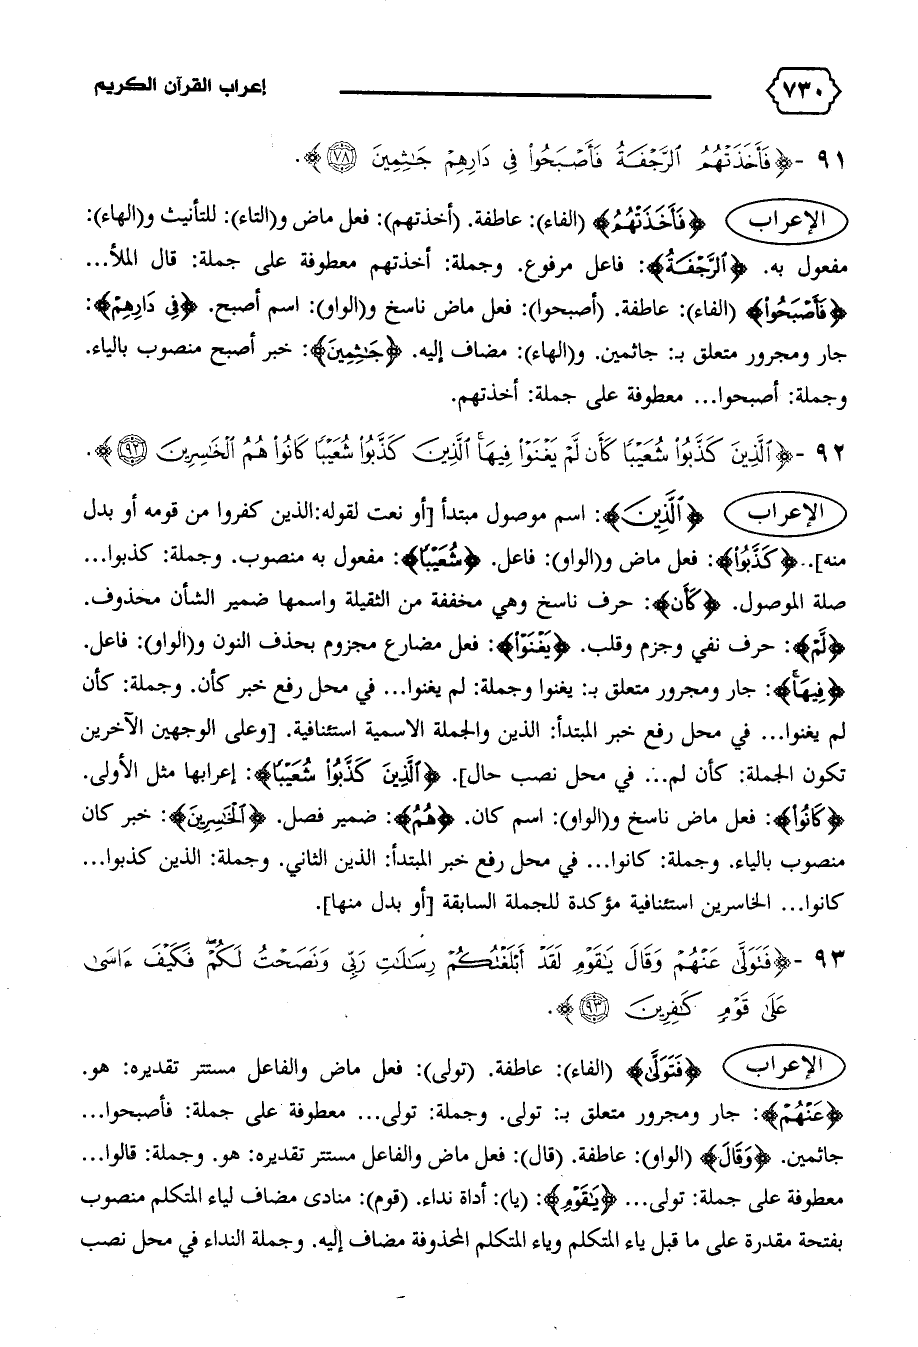 ٧٣٠ إعراب القرآن الكريم
٩١ - ﴿فَأَخَذَتْهُمُ ٱلرَّجْفَةُ فَأَصْبَحُوا۟ فِى دَارِهِمْ جَٰثِمِينَ ٧٨﴾.
الإعراب ﴿فَأَخَذَتْهُمُ﴾ (الفاء): عاطفة. (أخذتهم): فعل ماض و(التاء): للتأنيث و(الهاء):
مفعول به. ﴿ٱلرَّجْفَةُ﴾: فاعل مرفوع. وجملة: أخذتهم معطوفة على جملة: قال الملأ...
﴿فَأَصْبَحُوا۟﴾ (الفاء): عاطفة. (أصبحوا): فعل ماض ناسخ و(الواو): اسم أصبح. ﴿فِى دَارِهِمْ﴾:
جار ومجرور متعلق بـ: جاثمين. و(الهاء): مضاف إليه. ﴿جَٰثِمِينَ﴾: خبر أصبح منصوب بالياء.
وجملة: أصبحوا... معطوفة على جملة: أخذتهم.
٩٢ - ﴿ٱلَّذِينَ كَذَّبُوا۟ شُعَيْبًا كَأَن لَّمْ يَغْنَوْا۟ فِيهَا ۚ ٱلَّذِينَ كَذَّبُوا۟ شُعَيْبًا كَانُوا۟ هُمُ ٱلْخَٰسِرِينَ ٩٢﴾.
الإعراب ﴿ٱلَّذِينَ﴾: اسم موصول مبتدأ [أو نعت لقوله:الذين كفروا من قومه أو بدل
منه].. ﴿كَذَّبُوا۟﴾: فعل ماض و(الواو): فاعل. ﴿شُعَيْبًا﴾: مفعول به منصوب. وجملة: كذبوا...
صلة الموصول. ﴿كَأَن﴾: حرف ناسخ وهي مخففة من الثقيلة واسمها ضمير الشأن محذوف.
﴿لَّمْ﴾: حرف نفي وجزم وقلب. ﴿يَغْنَوْا۟﴾: فعل مضارع مجزوم بحذف النون و(الواو): فاعل.
﴿فِيهَا ۚ﴾: جار ومجرور متعلق بـ: يغنوا وجملة: لم يغنوا... في محل رفع خبر كأن. وجملة: كأن
لم يغنوا... في محل رفع خبر المبتدأ: الذين والجملة الاسمية استئنافية. [وعلى الوجهين الآخرين
تكون الجملة: كأن لم... في محل نصب حال]. ﴿ٱلَّذِينَ كَذَّبُوا۟ شُعَيْبًا﴾: إعرابها مثل الأولى.
﴿كَانُوا۟﴾: فعل ماض ناسخ و(الواو): اسم كان. ﴿هُمُ﴾: ضمير فصل. ﴿ٱلْخَٰسِرِينَ﴾: خبر كان
منصوب بالياء. وجملة: كانوا... في محل رفع خبر المبتدأ: الذين الثاني. وجملة: الذين كذبوا...
كانوا... الخاسرين استئنافية مؤكدة للجملة السابقة [أو بدل منها].
٩٣ - ﴿فَتَوَلَّىٰ عَنْهُمْ وَقَالَ يَٰقَوْمِ لَقَدْ أَبْلَغْتُكُمْ رِسَٰلَٰتِ رَبِّى وَنَصَحْتُ لَكُمْ ۖ فَكَيْفَ ءَاسَىٰ
عَلَىٰ قَوْمٍ كَٰفِرِينَ ٩٣﴾.
الإعراب ﴿فَتَوَلَّىٰ﴾ (الفاء): عاطفة. (تولى): فعل ماض والفاعل مستتر تقديره: هو.
﴿عَنْهُمْ﴾: جار ومجرور متعلق بـ: تولى. وجملة: تولى... معطوفة على جملة: فأصبحوا...
جاثمين. ﴿وَقَالَ﴾ (الواو): عاطفة. (قال): فعل ماض والفاعل مستتر تقديره: هو. وجملة: قالوا...
معطوفة على جملة: تولى... ﴿يَٰقَوْمِ﴾: (يا): أداة نداء. (قوم): منادى مضاف لياء المتكلم منصوب
بفتحة مقدرة على ما قبل ياء المتكلم وياء المتكلم المحذوفة مضاف إليه. وجملة النداء في محل نصب